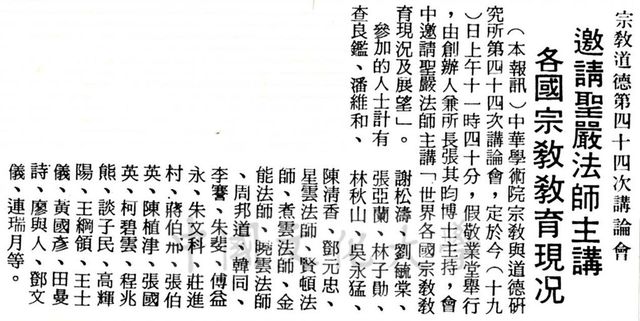 宗教道德第四十四次講論會
邀請聖嚴法師主講
各國宗教教育現況
（本報訊）中華學術院宗教與道德研
究所第四十四次講論會，定於今（十九
）日上午十一時四十分，假敬業堂舉行
，由創辦人兼所長張其昀博士主持，會
中邀請聖嚴法師主講「世界各國宗教教
育現況及展望」。
參加的人士計有
查良鑑、潘維和、
謝松濤、劉毓棠、
張亞蘭、林子勛、
林秋山、吳永猛、
陳清香、鄧元忠、
星雲法師、賓頓法
師、煮雲法師、金
能法師、曉雲法師
、周邦道、韓同、
李謇、朱斐、傅益
永、朱科、莊進
村、蔣伯、張伯
英、陳植津、張國
英、柯碧雲、程兆
熊、談子民、高輝
陽、王綱領、王士
儀、黃國彥、田曼
詩、廖與人、鄧文
儀、連瑞月等。
中國文化大學